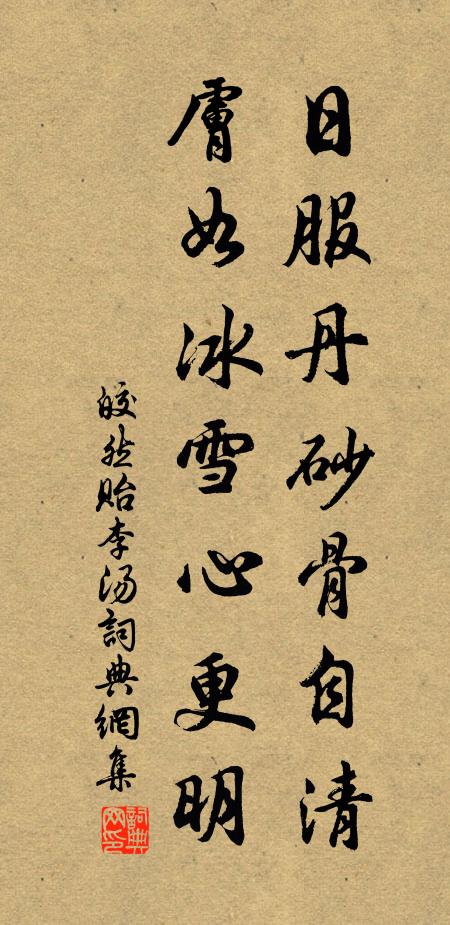 日服丹砂骨自清
膚如冰雪心更明
皎然貽李湯詞典網集
詞典网印